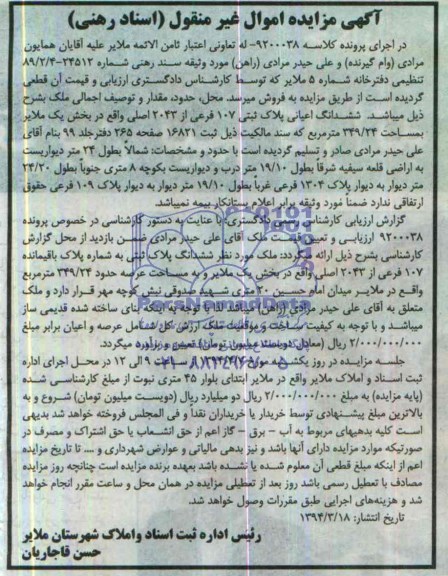 آگهی مزایده اموال غیر منقول (اسناد رهنی)
در اجرای پرونده کلاسه ۹۲۰۰۰۳۸- له تعاونی اعتبار ثامن الائمه ملایر علیه آقایان همایون
مرادی (وام گیرنده) و علی حیدر مرادی (راهن) مورد وثیقه سند رهنی شماره ۲۴۵۱۲-۸۹/۲/۴
تنظیمی دفترخانه شماره ۵ ملایر که توسط کارشناس دادگستری ارزیابی و قیمت آن قطعی
گردیده است از طریق مزایده به فروش میرسد. محل، حدود، مقدار و توصیف اجمالی ملک بشرح
ذیل میباشد. ششدانگ اعیانی پلاک ثبتی ۱۰۷ فرعی از ۲۰۴۳ اصلی واقع در بخش یک ملایر
بمساحت ۳۴۹/۲۴ مترمربع که سند مالکیت ذیل ثبت ۱۶۸۲۱ صفحه ۲۶۵ دفترجلد ۹۹ بنام آقای
علی حیدر مرادی صادر و تسلیم گردیده است با حدود و مشخصات: شمالاً بطول ۲۴ متر دیواریست
به اراضی قلعه سیفیه شرقا بطول ۱۹/۱۰ متر درب و دیواریست بکوچه ۸ متری جنوباً بطول ۲۴/۲۰
متر دیوار به دیوار پلاک ۱۳۰۴ فرعی غرباً بطول ۱۹/۱۰ متر دیوار به دیوار پلاک ۱۰۹ فرعی حقوق
ارتفاقی ندارد ضمناً مورد وثیقه برابر اعلام بستانکار بیمه نمیباشد.
گزارش ارزیابی کارشناس رسمی دادگستری: با عنایت به دستور کارشناسی در خصوص پرونده
۹۲۰۰۰۳۸ ارزیابی و تعیین قیمت ملک آقای علی حیدر مرادی ضمن بازدید از محل گزارش
کارشناسی بشرح ذیل ارائه میگردد: ملک مورد نظر ششدانگ پلاک ثبتی به شماره پلاک باقیمانده
۱۰۷ فرعی از ۲۰۴۳ اصلی واقع در بخش یک ملایر و به مساحت عرصه حدود ۳۴۹/۲۴ مترمربع
واقع در ملایر میدان امام حسین ۲۰ متری شهید صدوقی نبش کوچه مهر قرار دارد و ملک
متعلق به آقای علی حیدر مرادی (راهن) میباشد لذا با توجه به اینکه بنای ساخته شده قدیمی ساز
میباشد و با توجه به کیفیت ساخت و موقعیت ملک ارزش کل شامل عرصه و اعیان برابر مبلغ
۲/۰۰۰/۰۰۰/۰۰۰ ریال (معادل دویست میلیون تومان) تعیین و برآورد میگردد.
جلسه مزایده در روز یکشنبه مورخ ۱۳۹۴/۴/۷ از ساعت ۹ الی ۱۲ در محل اجرای اداره
ثبت اسناد و املاک ملایر واقع در ملایر ابتدای بلوار ۴۵ متری نبوت از مبلغ کارشناسی شده
(پایه مزایده) به مبلغ ۲/۰۰۰/۰۰۰/۰۰۰ ریال دو میلیارد ریال (دویست میلیون تومان) شروع و به
بالاترین مبلغ پیشنهادی توسط خریدار یا خریداران نقداً و فی المجلس فروخته خواهد شد بدیهی
است کلیه بدهیهای مربوط به آب – برق – گاز اعم از حق انشعاب یا حق اشتراک و مصرف در
صورتیکه موارد مزایده دارای آنها باشد و نیز بدهی مالیاتی و عوارض شهرداری و .... تا تاریخ مزایده
اعم از اینکه مبلغ قطعی آن معلوم شده یا نشده باشد بعهده برنده مزایده است چنانچه روز مزایده
مصادف با تعطیل رسمی باشد روز بعد از تعطیلی مزایده در همان محل و ساعت مقرر انجام خواهد
شد و هزینه‌های اجرایی طبق مقررات وصول خواهد شد.
تاریخ انتشار: ۱۳۹۴/۳/۱۸
رئیس اداره ثبت اسناد واملاک شهرستان ملایر
حسن قاجاریان